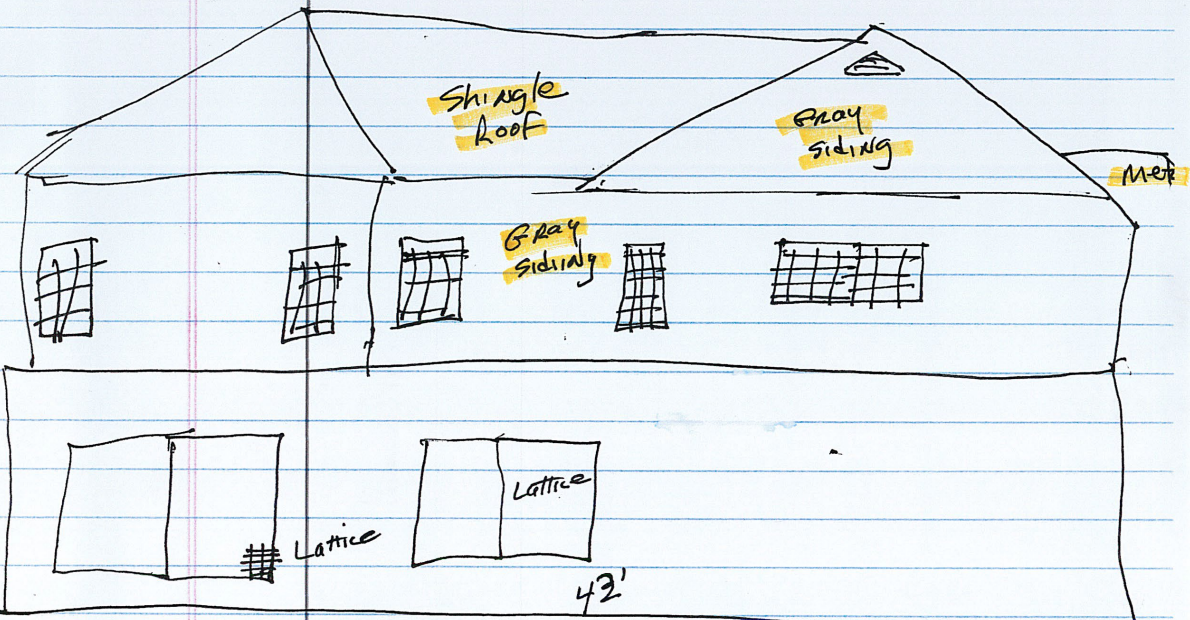 Shingle
Roof
Gray
Siding
Met
Gray
Siding
Lattice
Lattice
42'